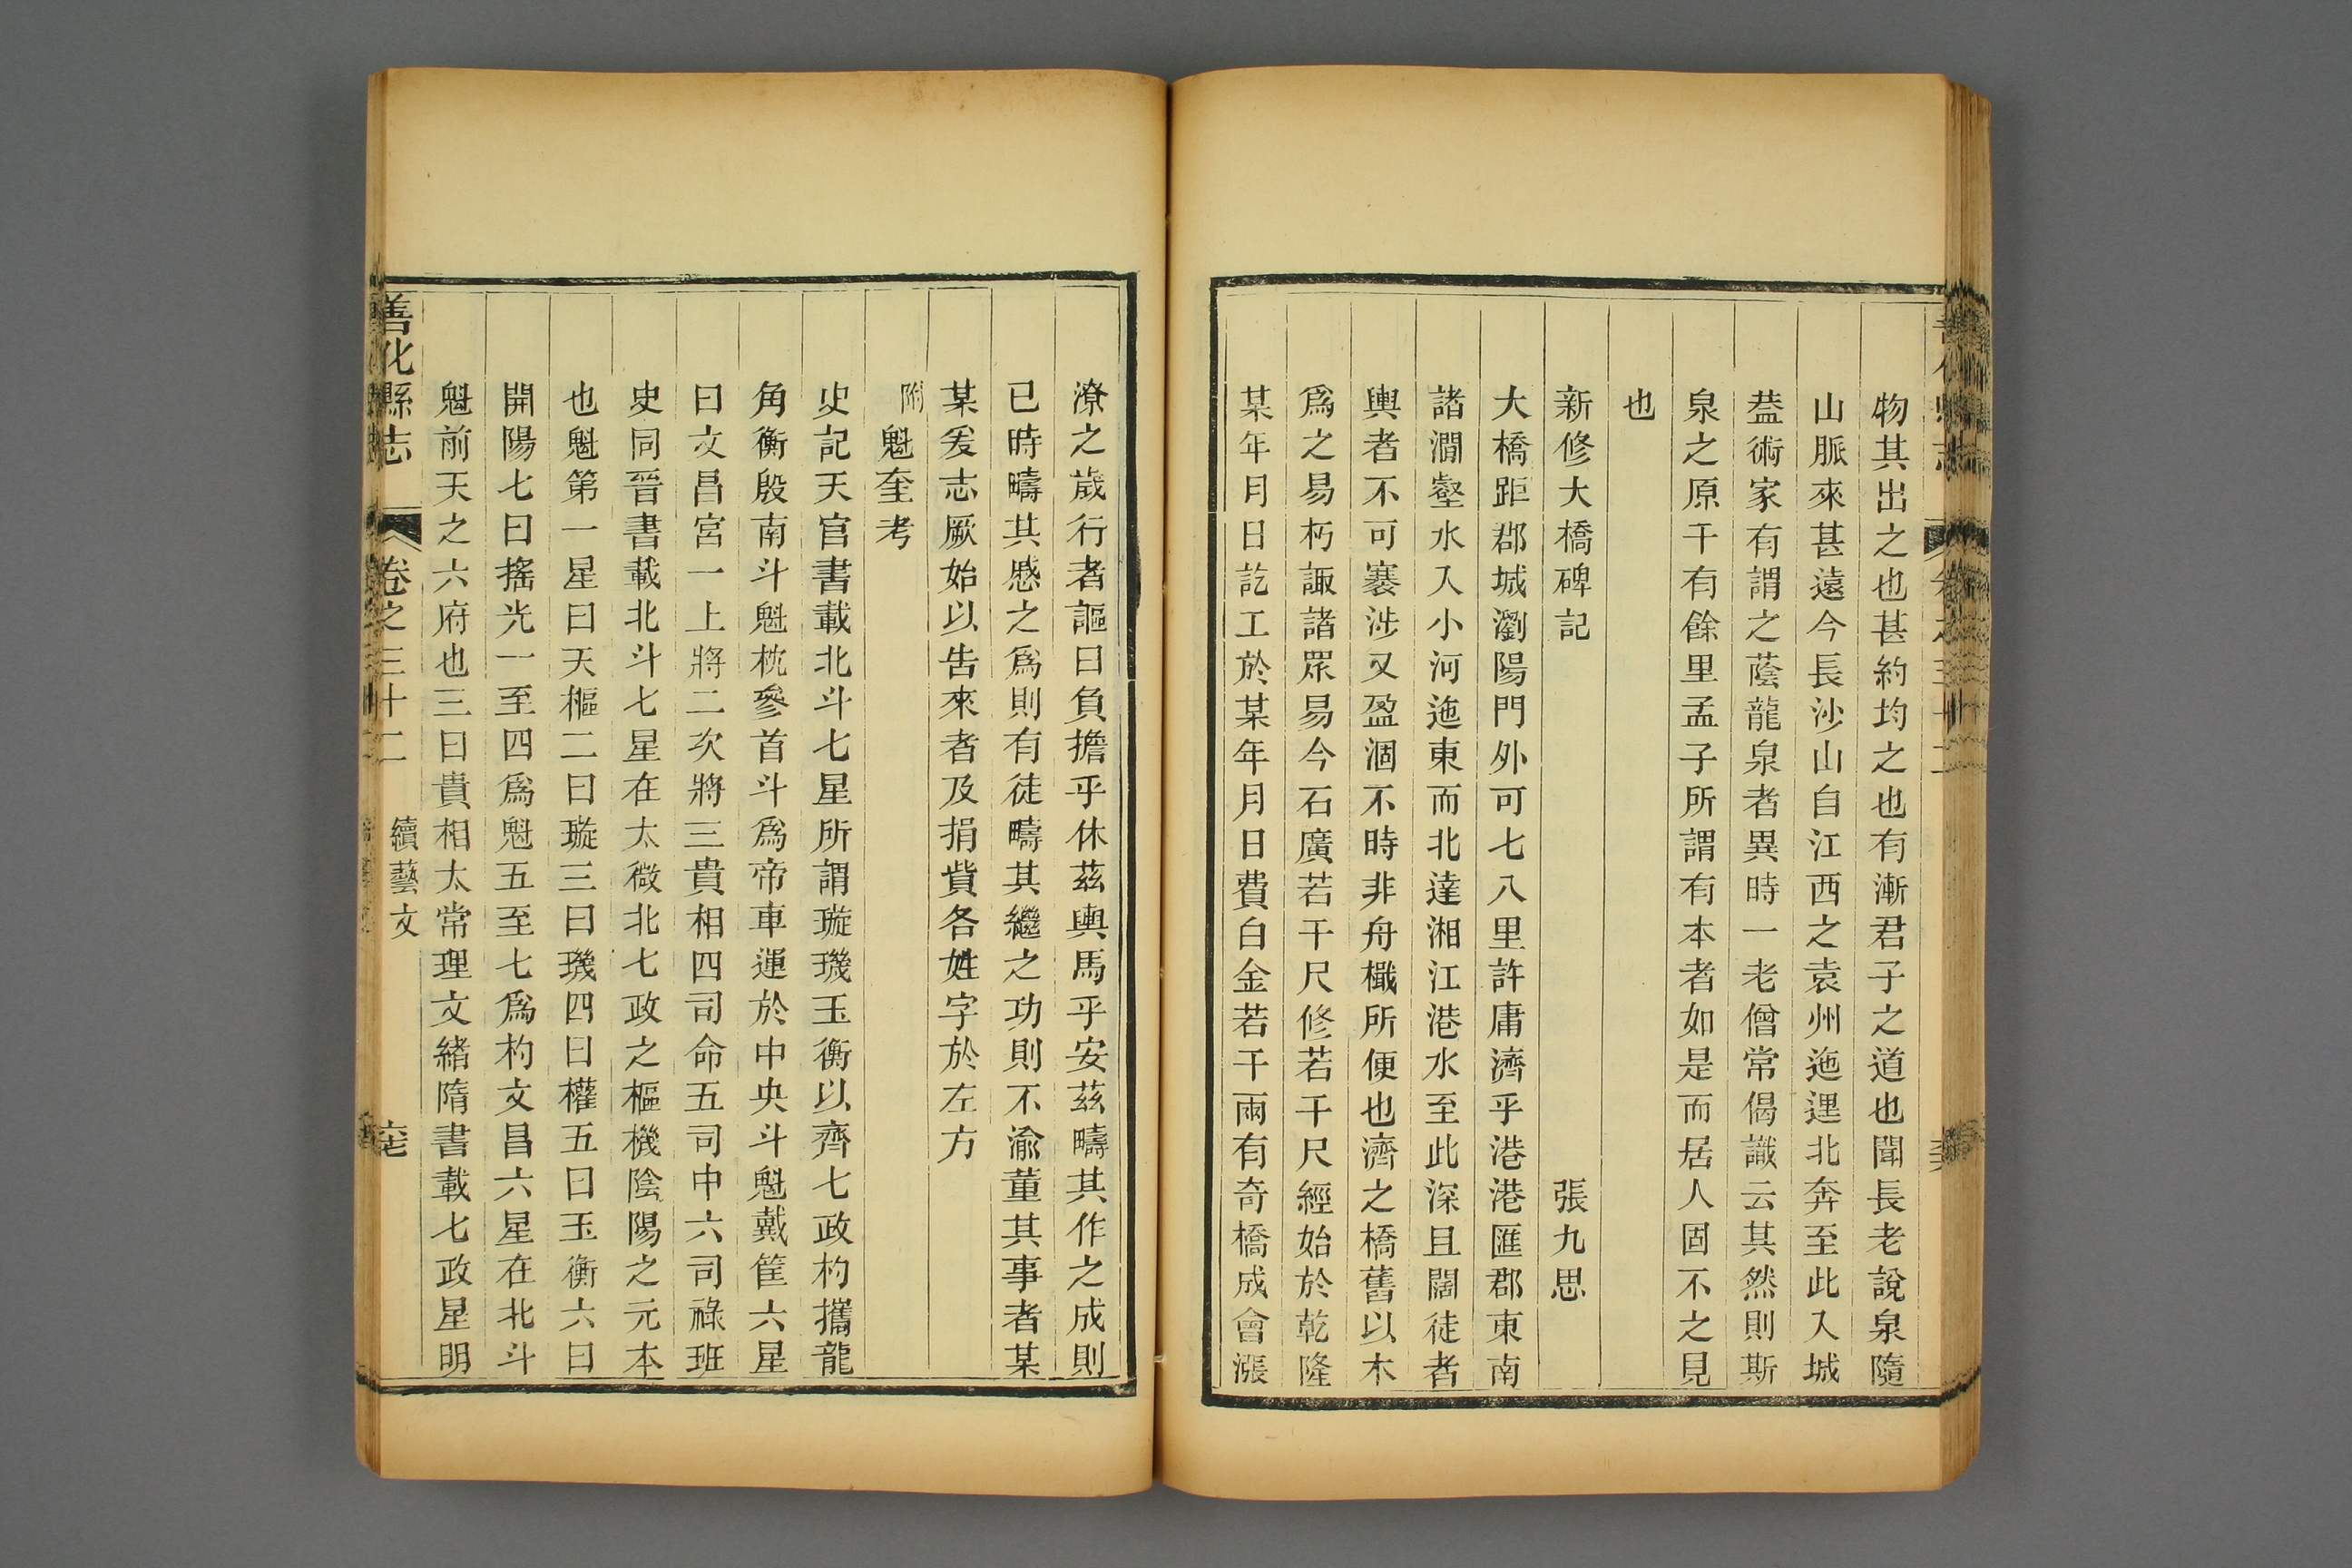 物其出之也甚約均之也有漸君子之道也聞長老說泉隨
山脈來甚遠今長沙山自江西之袁州迤逕北奔至此入城
葢術家有謂之蔭龍泉者異時一老僧常偈識云其然則斯
泉之原干有餘里孟子所謂有本者如是而居人固不之見
也
新修大橋碑記 張九思
大橋距郡城瀏陽門外可七八里許庸濟乎港港匯郡東南
諸澗壑水入小河迤東而北達湘江港水至此深且闊徒者
輿者不可褰涉又盈涸不時非舟檝所便也濟之橋舊以木
爲之易朽諏諸眾易今石廣若干尺修若干尺經始於乾隆
某年月日訖工於某年月日費白金若干兩有奇橋成會漲
潦之歲行者謳曰負擔乎休茲輿馬乎安茲疇其作之成則
已時疇其慼之爲則有徒疇其繼之功則不渝董其事者某
某爰志厥始以告來者及捐貲各姓字於左方
附魁奎考
史記天官書載北斗七星所謂璇璣玉衡以齊七政杓攜龍
角衡殷南斗魁枕參首斗爲帝車運於中央斗魁戴筐六星
曰文昌宮一上將二次將三貴相四司命五司中六司祿班
史同晉書載北斗七星在太微北七政之樞機陰陽之元本
也魁第一星曰天樞二曰璇三曰璣四曰權五曰玉衡六曰
開陽七曰搖光一至四爲魁五至七爲杓文昌六星在北斗
魁前天之六府也三曰貴相太常理文緒隋書載七政星明
善化縣志 卷之三十二 續藝文 六七